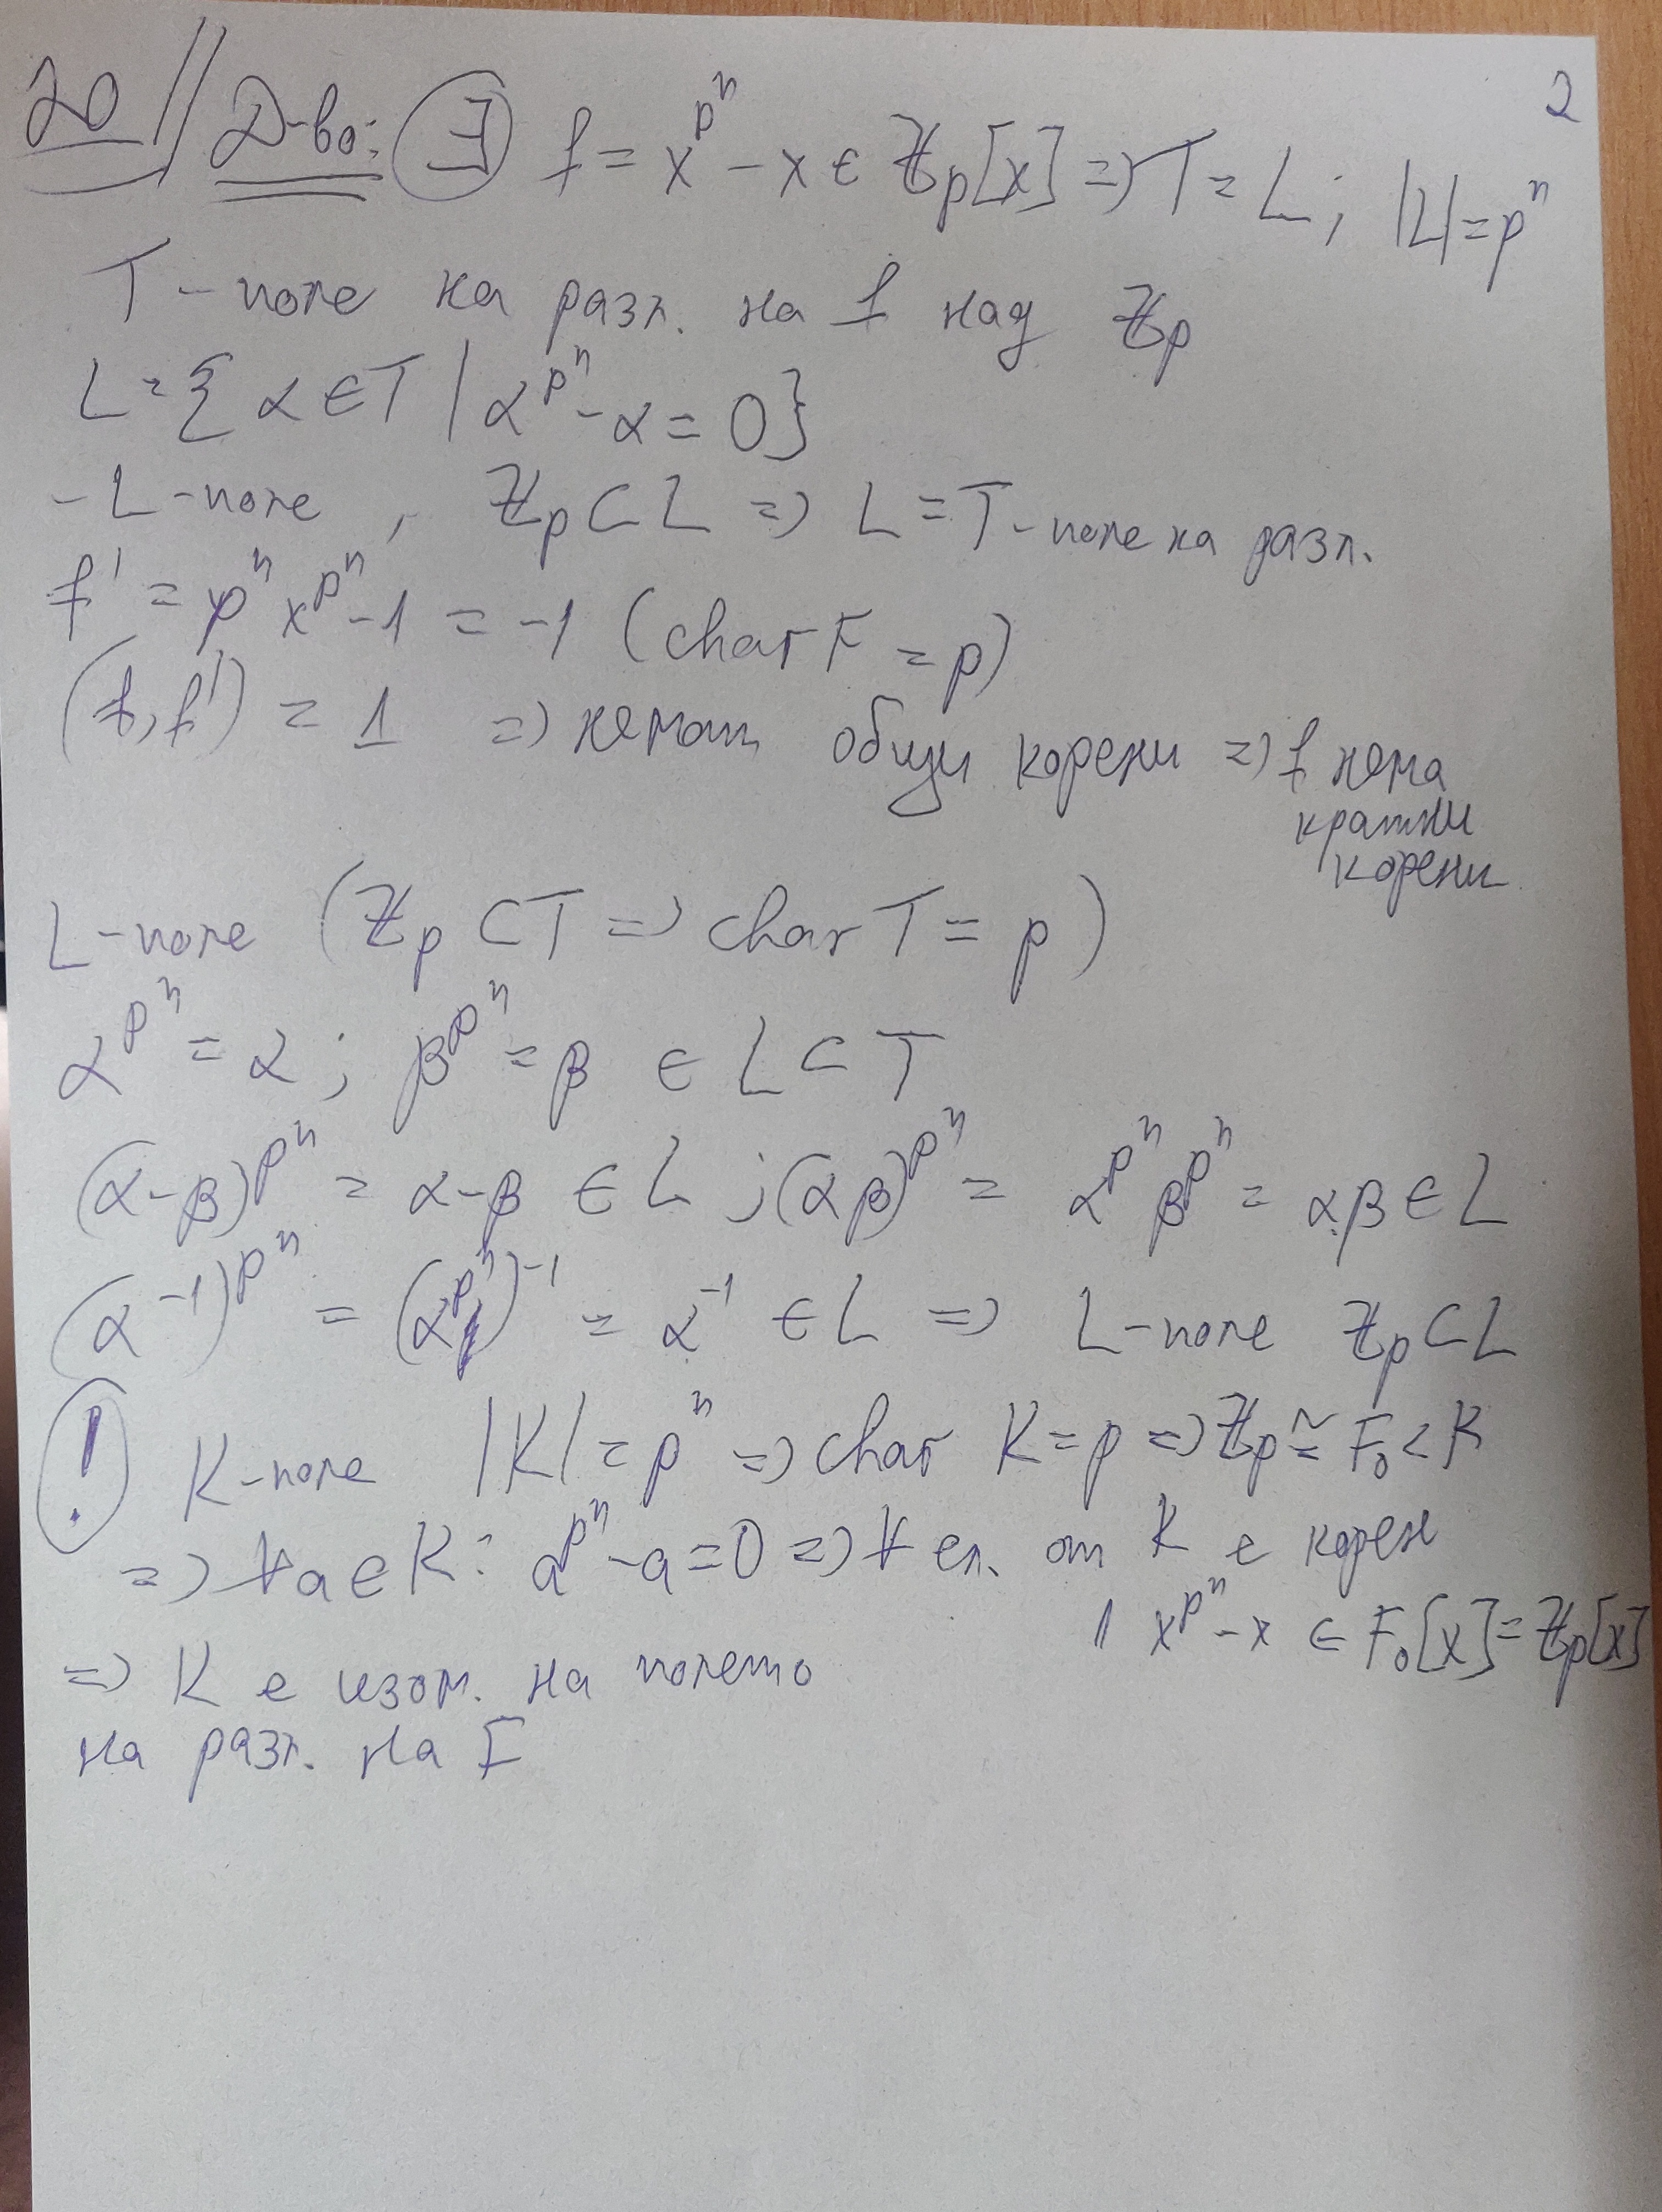 2
20 // Д-во: ∃ f = x^{p^n} - x ∈ ℤ_p[x] => T = L; |L| = p^n
T - поле на разл. на f над ℤ_p
L = { α ∈ T | α^{p^n} - α = 0}
- L - поле, ℤ_p ⊂ L => L = T - поле на разл.
f' = p^n x^{p^n - 1} = -1 (char F = p)
(f, f') = 1 => немат общи корени => f нема
кратни
корени
L - поле (ℤ_p ⊂ T => char T = p)
α^{p^n} = α; β^{p^n} = β ∈ L ⊂ T
(α - β)^{p^n} = α - β ∈ L; (αβ)^{p^n} = α^{p^n} β^{p^n} = αβ ∈ L
(α^{-1})^{p^n} = (α^{p^n})^{-1} = α^{-1} ∈ L => L - поле ℤ_p ⊂ L
! K - поле |K| = p^n => char K = p => ℤ_p ≅ F_0 < K
=> ∀ a ∈ K: a^{p^n} - a = 0 => ∀ ел. от K е корен
x^{p^n} - x ∈ F_0[x] = ℤ_p[x]
=> K е изом. на полето
на разл. на f